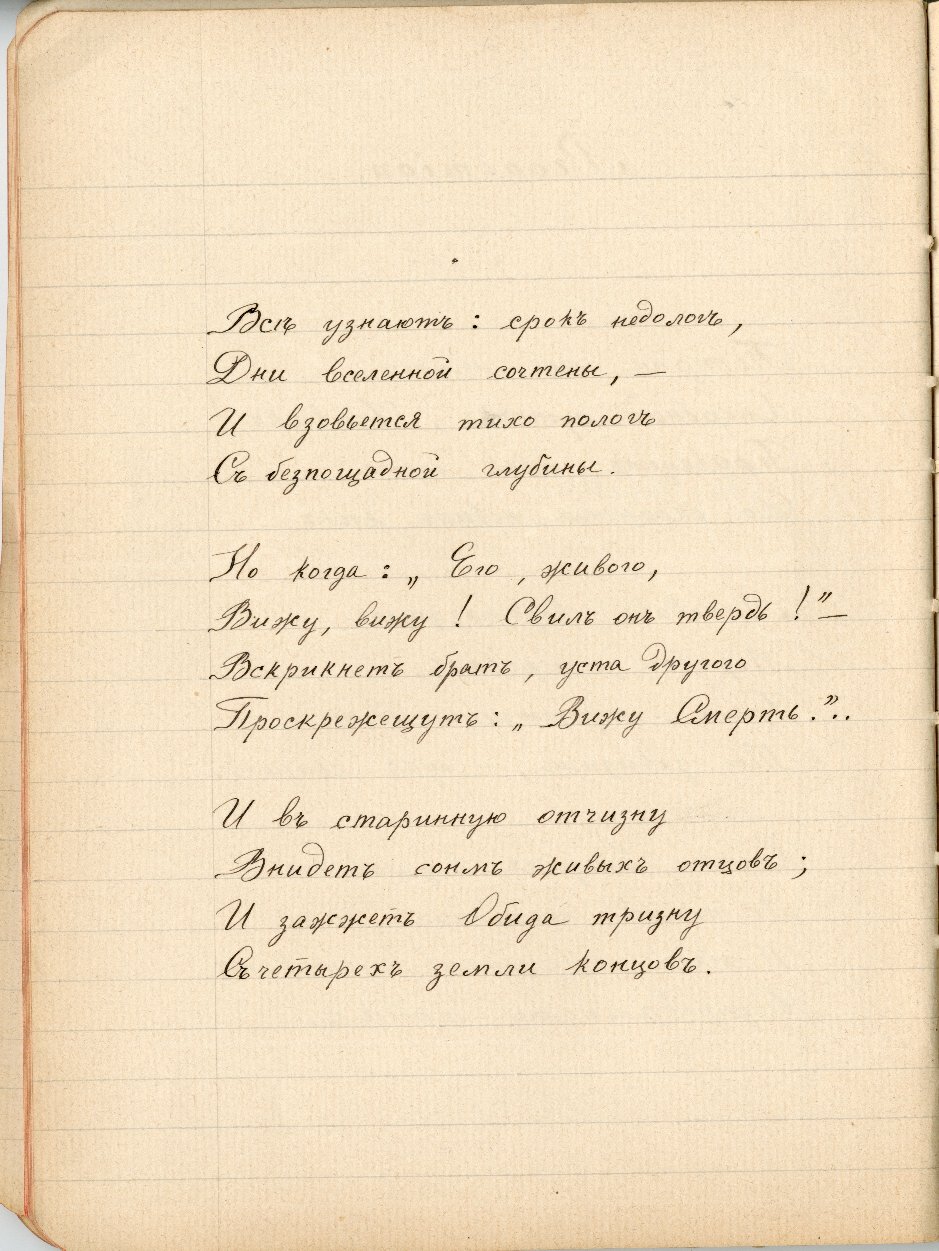 Всѣ узнаютъ: срокъ недологъ,
Дни вселенной сочтены, —
И взовьется тихо пологъ
Съ безпощадной глубины.
Но когда: „Его, живого,
Вижу, вижу! Свилъ онъ твердь!” —
Вскрикнетъ братъ, уста другого
Проскрежещутъ: „Вижу Смерть.”..
И въ старинную отчизну
Внидетъ сонмъ живыхъ отцовъ;
И зажжетъ Обида тризну
Съ четырехъ земли концовъ.